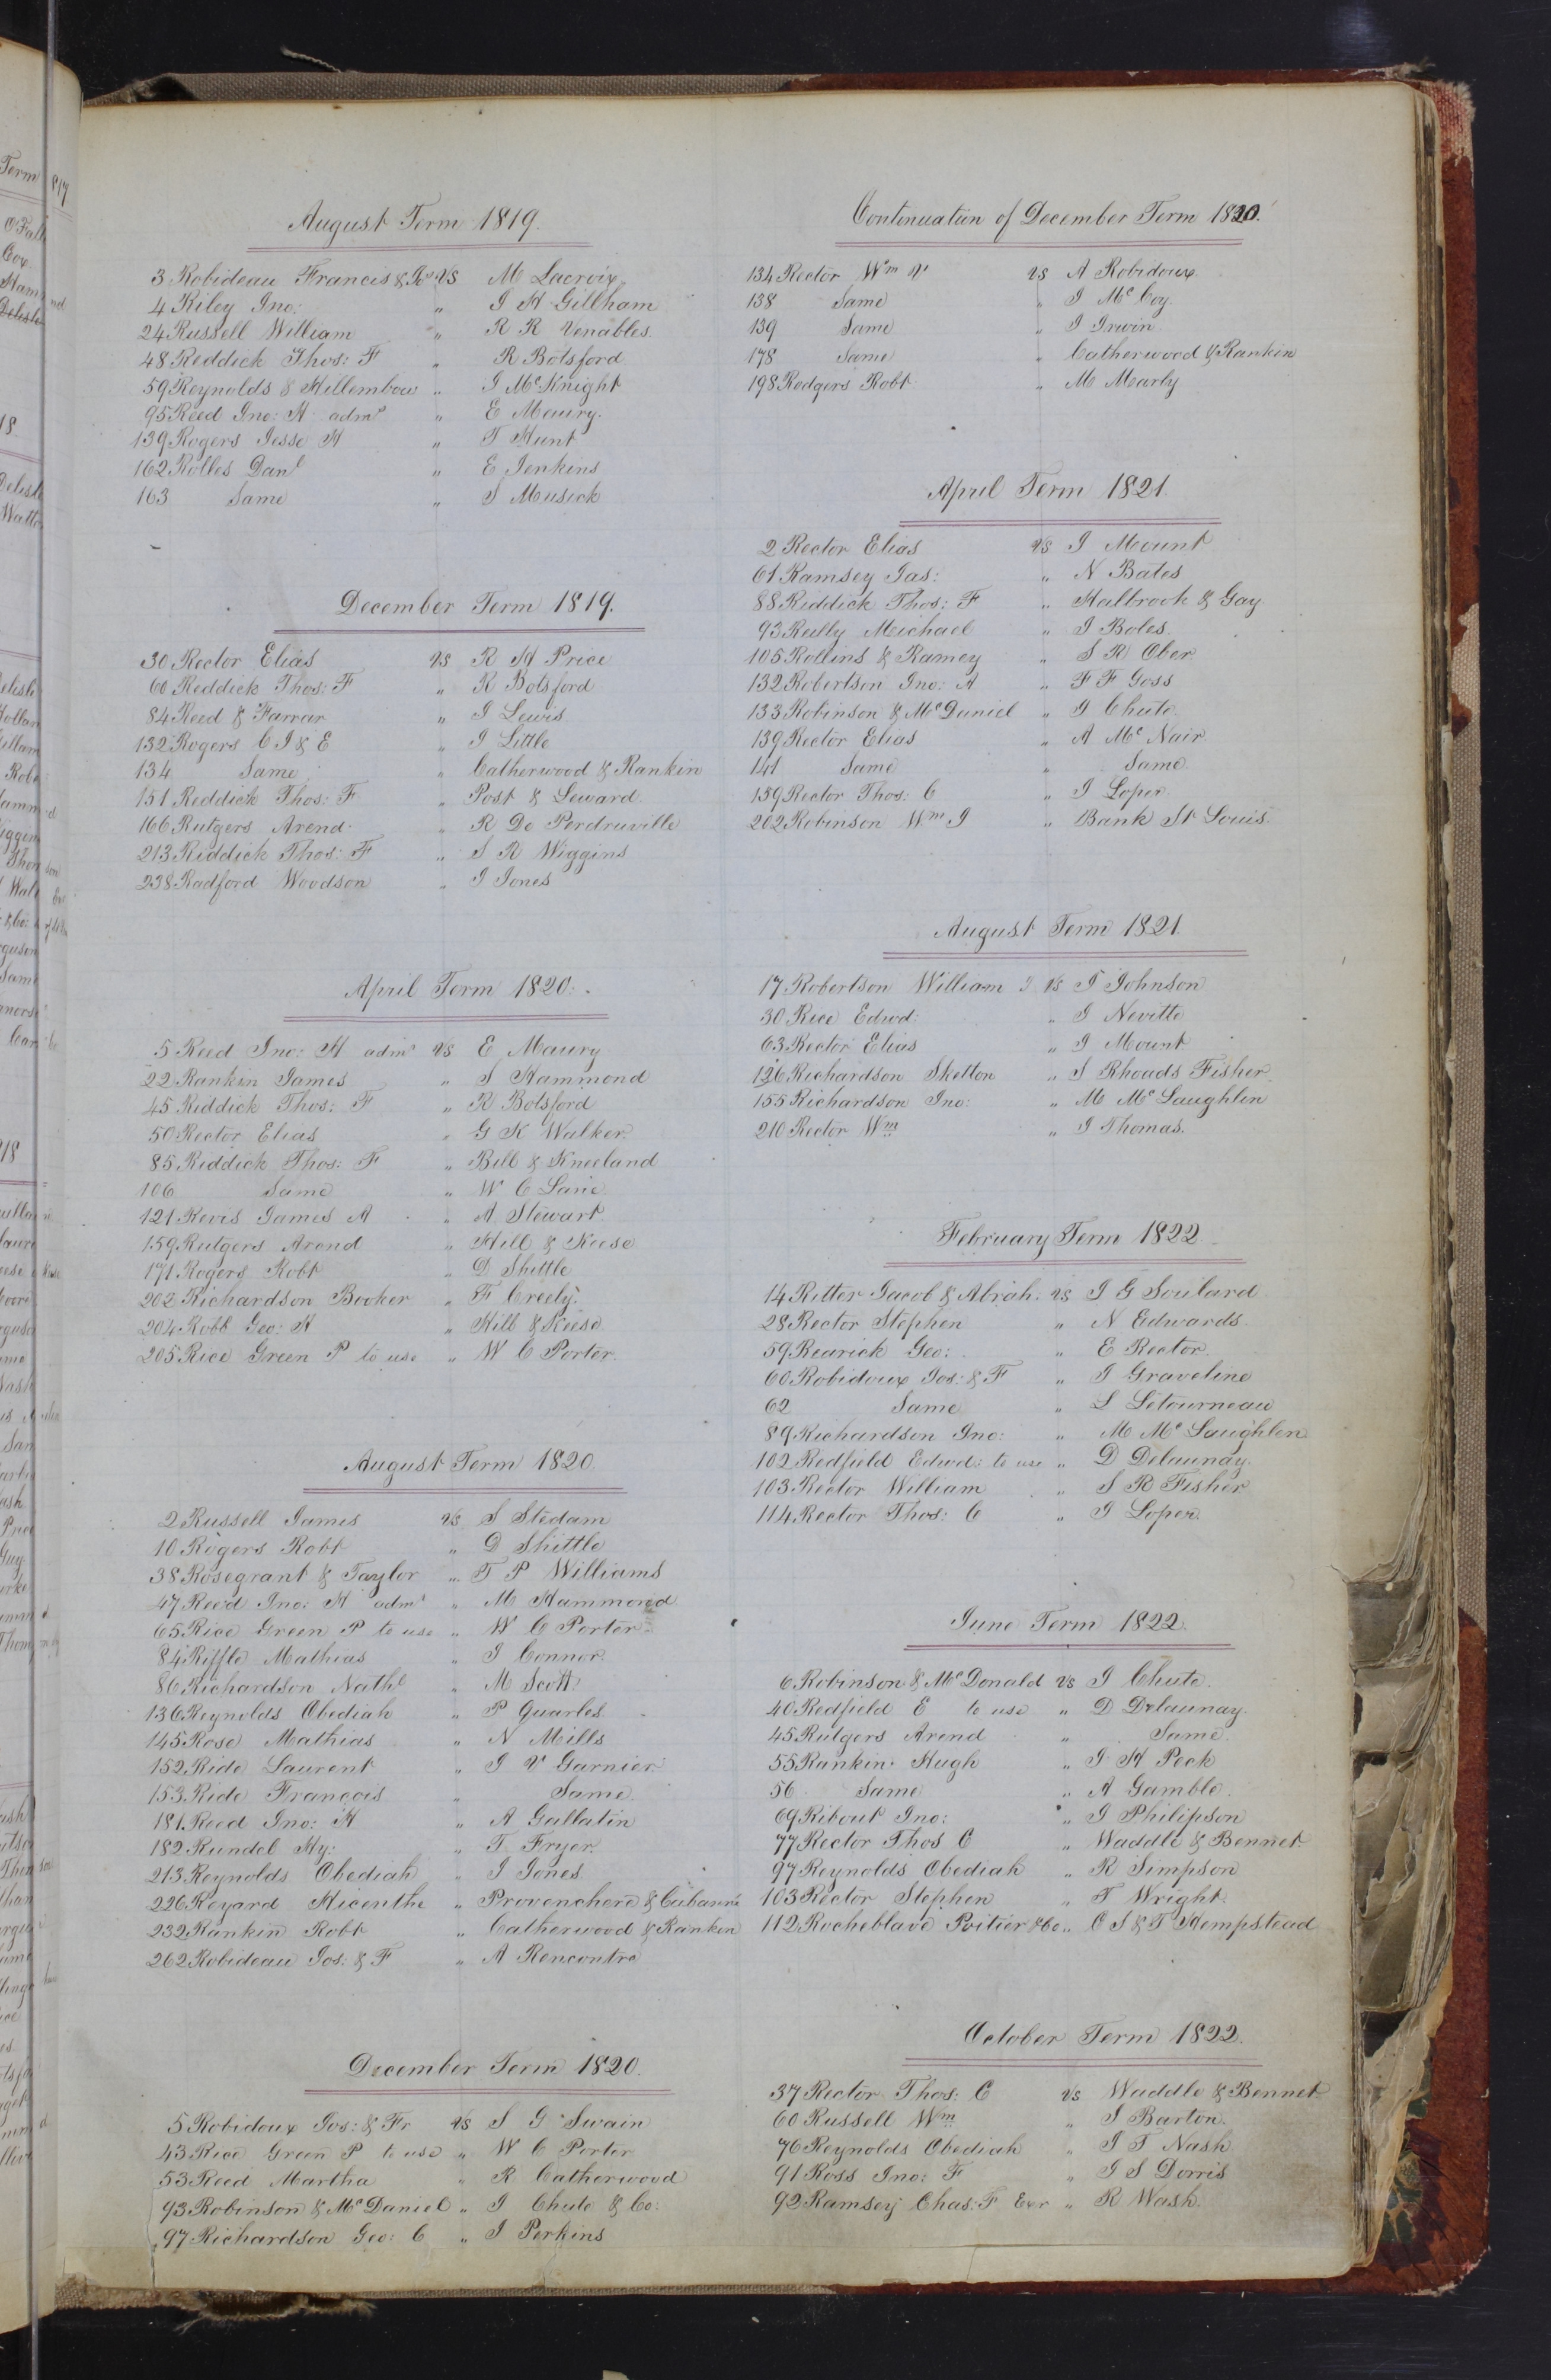 August Term 1819.
3 Robideau Francis & Jos vs M Lacroix
4 Riley Jno: " J H Gillham
24 Russell William " R R Venables.
48 Reddick Thos: F " R Botsford
59 Reynolds & Hillembow " J McKnight
95 Reed Jno: H admr " E Maury.
139 Rogers Jesse H " T Hunt
162 Rolles Danl " E Jenkins
163 Same " S Musick
December Term 1819.
30 Rector Elias vs R H Price
60 Reddick Thos: F " R Botsford
84 Reed & Farrar " J Lewis
132 Rogers C J & E " J Little
134 Same " Catherwood & Rankin
151 Reddick Thos: F " Post & Seward.
166 Rutgers Arend " R De Perdruville
213 Riddick Thos: F " S R Wiggins
238 Radford Woodson " J Jones
April Term 1820.
5 Reed Jno: H admr vs E Maury
22 Rankin James " S Hammond
45 Riddick Thos: F " R Botsford
50 Rector Elias " G K Walker.
85 Riddick Thos: F " Bell & Kneeland
106 Same " W C Lane
121 Revis James A " A Stewart
159 Rutgers Arend " Hill & Keese
171 Rogers Robt " D Shittle
202 Richardson Booker " F Creely.
204 Robb Geo: H " Hill & Keese
205 Rice Green P to use " W C Porter.
August Term 1820.
2 Russell James vs S Stedam
10 Rogers Robt " D Shittle
38 Rosegrant & Taylor " T P Williams
47 Reed Jno: H admr " M Hammond
65 Rice Green P to use " W C Porter
84 Riffle Mathias " J Connor.
86 Richardson Nathl " M Scott
136 Reynolds Obediah " P Quarles
145 Rose Mathias " N Mills
152 Ride Laurent " J V Garnier
153 Ride François " Same.
181 Reed Jno: H " A Gallatin
182 Rundel Hy: " T Fryer.
213 Reynolds Obediah " J Jones
226 Reyard Hicenthe " Provenchere & Cabanné
232 Rankin Robt " Catherwood & Rankin
262 Robideau Jos: & F " A Rencontre
December Term 1820.
5 Robidoux Jos: & Fr vs S G Swain
43 Rice Green P to use " W C Porter
53 Reed Martha " R Catherwood
93 Robinson & McDaniel " J Chute & Co:
97 Richardson Geo: C " J Perkins
Continuation of December Term 1820.
134 Rector Wm V vs A Robidoux
138 Same " J McCoy.
139 Same " J Irwin.
178 Same " Catherwood & Rankin
198 Rodgers Robt " M Marly
April Term 1821.
2 Rector Elias vs J Mount
61 Ramsey Jas: " N Bates
88 Riddick Thos: F " Halbrook & Gay
93 Reilly Michael " J Boles.
105 Rollins & Ramey " S R Ober.
132 Robertson Jno: A " F F Goss
133 Robinson & McDaniel " J Chute.
139 Rector Elias " A McNair.
141 Same " Same.
159 Rector Thos: C " J Loper.
202 Robinson Wm J " Bank St Louis.
August Term 1821.
17 Robertson William J vs T Johnson
30 Rice Edwd: " J Nevitte
63 Rector Elias " J Mount
126 Richardson Skelton " S Rhoads Fisher.
155 Richardson Jno: " M McLaughlin
210 Rector Wm " J Thomas.
February Term 1822
14 Ritter Jacob & Abrah. vs J G Soulard
28 Rector Stephen " N Edwards.
59 Rearick Geo: " E Rector.
60 Robidoux Jos: & F " J Graveline
62 Same " L Letourneau
89 Richardson Jno: " M McLaughlin
102 Redfield Edwd: to use " D Delaunay.
103 Rector William " S R Fisher
114 Rector Thos: C " J Loper.
June Term 1822.
6 Robinson & McDonald vs J Chute.
40 Redfield E to use " D Delaunay.
45 Rutgers Arend " Same.
55 Rankin Hugh " J H Peck
56 Same " A Gamble.
69 Ribout Jno: " J Philipson
77 Rector Thos C " Waddle & Bennet
97 Reynolds Obediah " R Simpson
103 Rector Stephen " T Wright.
112 Rocheblave Poitier & Co " C S & T Hempstead
October Term 1822.
37 Rector Thos: C vs Waddle & Bennet
60 Russell Wm " J Barton.
76 Reynolds Obediah " J T Nash.
91 Ross Jno: F " J S Dorris
92 Ramsey Chas: F Exr " R Wash.